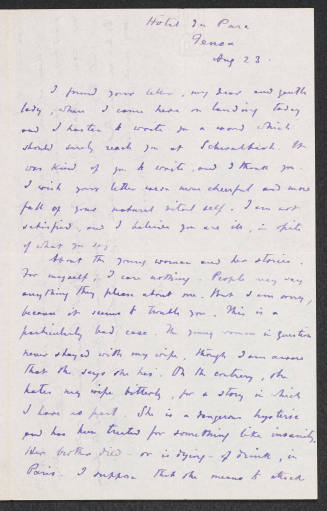 Hôtel du Parc
Genoa
Aug 23.
I found your letter, my dear and gentle
lady, when I came here on landing today
and I hasten to write you a word which
should surely reach you at Schwalbach. It
was kind of you to write, and I thank you.
I wish your letter were more cheerful and more
full of your natural vital self. I am not
satisfied, and I believe you are ill, in spite
of what you say.
About the young woman and her stories.
For myself, I care nothing. People may say
anything they please about me. But I am sorry,
because it seems to trouble you. This is a
particularly bad case. The young woman in question
never stayed with my wife, though I am aware
that she says she has. On the contrary, she
hates my wife bitterly, for a story in which
I have no part. She is a dangerous hysteric
and has been treated for something like insanity.
Her brother died - or is dying - of drink, in
Paris. I suppose that she means to attack